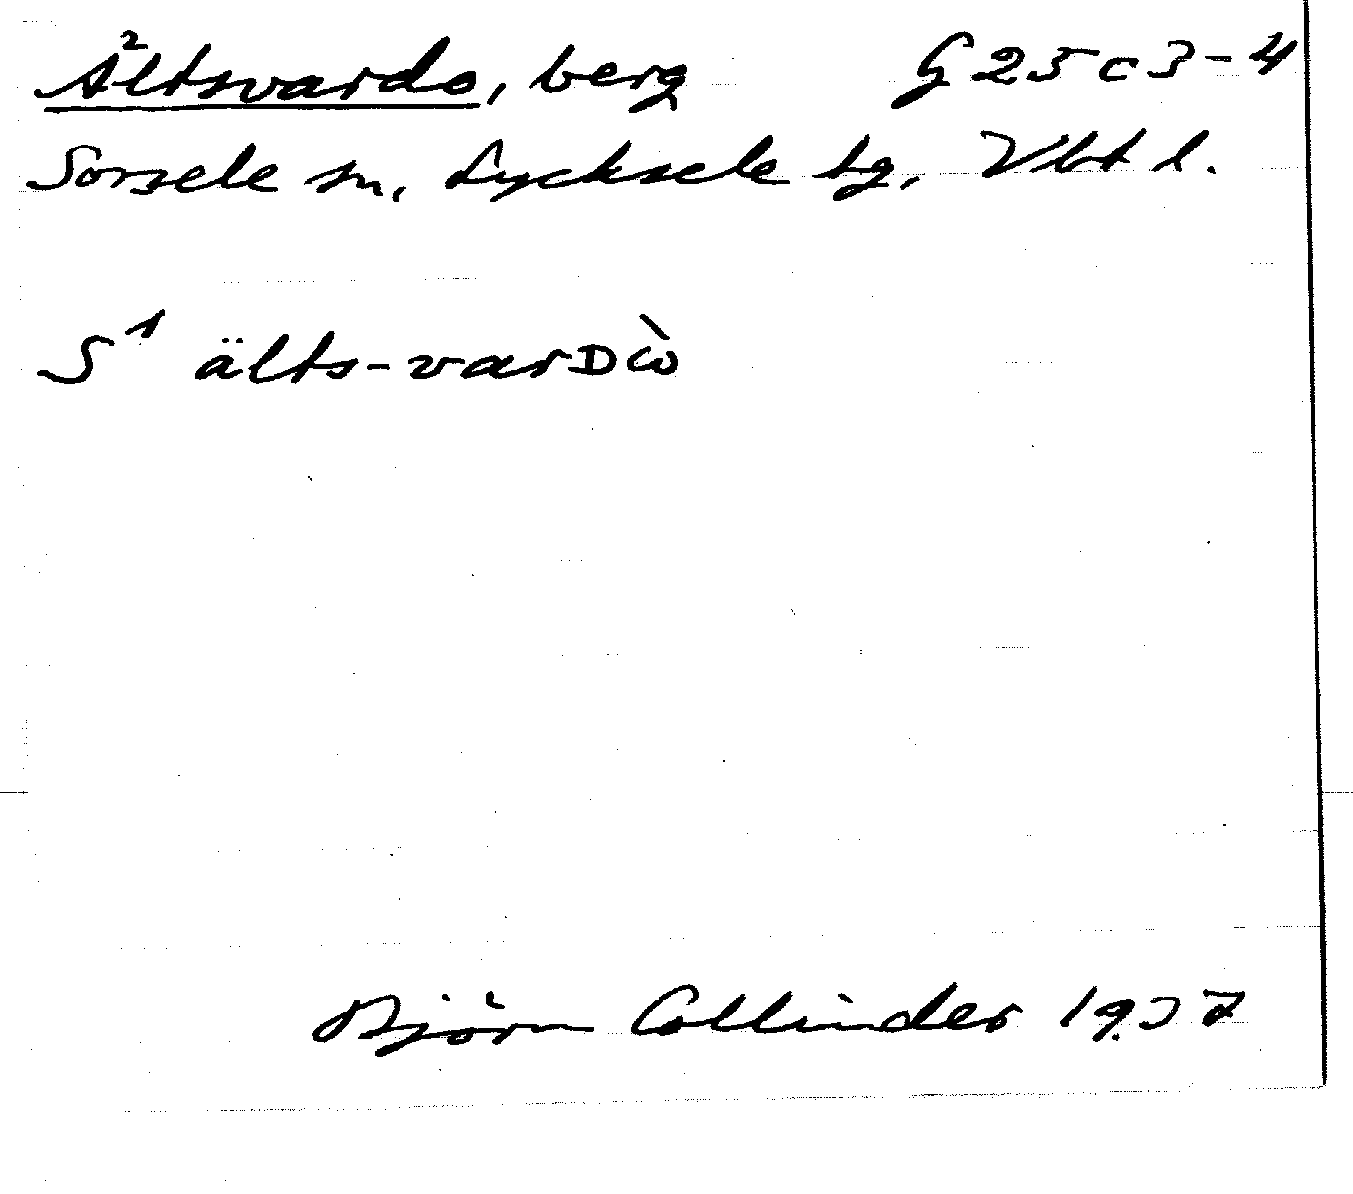 Ältsvardo, berg G 25 c 3-4
Sorsele sn, Lycksele tg, Vbt l.
S¹ älts-varᴅὼ
Björn Collinder 1937